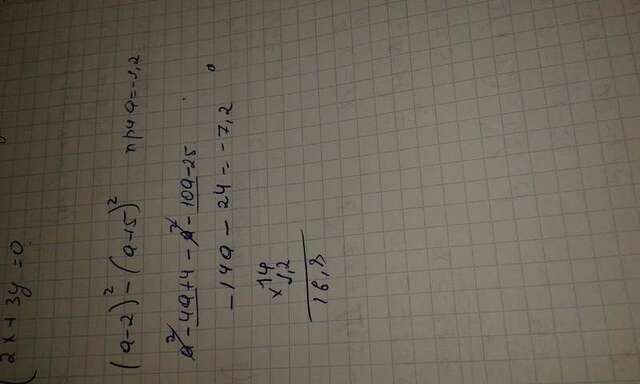 2x + 3y = 0
(a-2)² - (a+5)² при a=-1,2
a² - 4a+4 - a² - 10a-25
-14a - 24 = -7,2
14
× 1,2
16,8